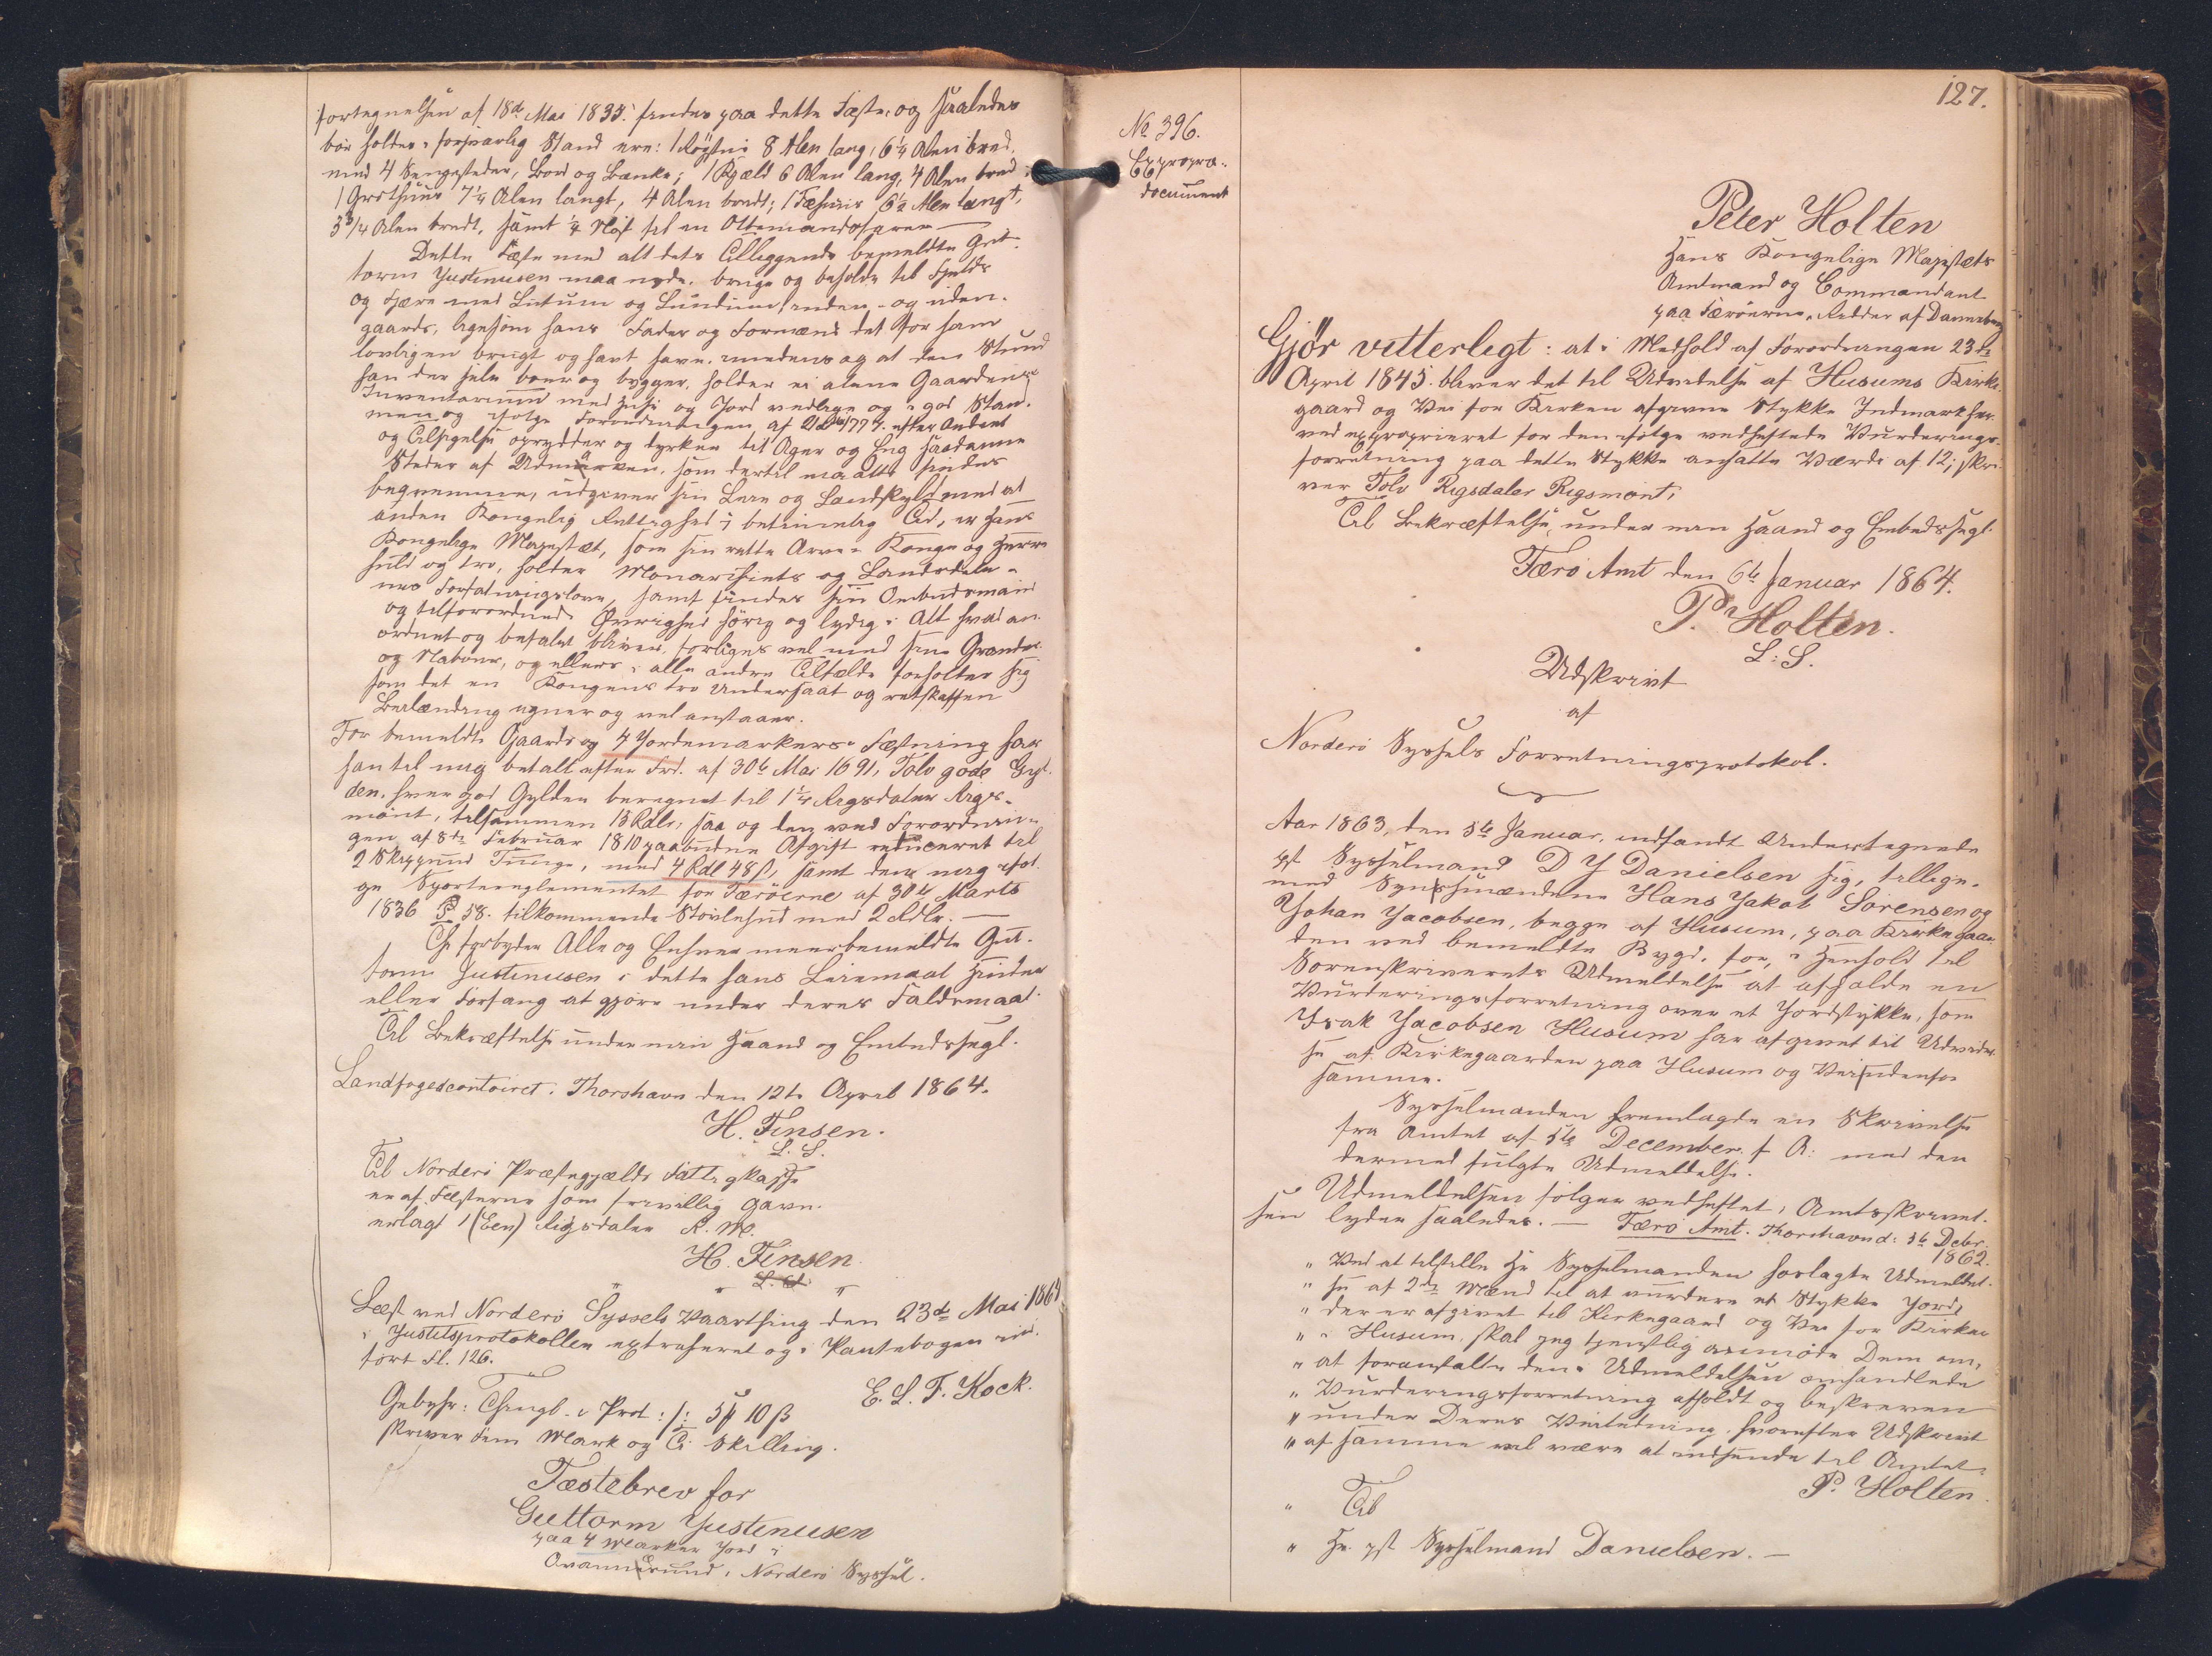 fortegnelsen af 18de Mai 1835. findes paa dette Fæste, og saaledes
bør holdes i forsvarlig Stand ere: 1 Røgstue 8 Alen lang, 6¼ Alen bred,
med 4 Sengesteder, Bord og Bænke; 1 Kjæld 6 Alen lang, 4 Alen bred
7¼ Alen langt, 4 Alen bredt; 1 Fæhuus 6½ Alen langt,
3¾ Alen bredt, samt ¼ Nøst til en Ottemandsfarer —
Dette Fæste med alt dets Tilliggende bemeldte Gut-
torm Justinusen maa nyde, bruge og beholde til Fjelds
og Fjære med Lutum og Lundum inden- og uden-
gaards, ligesom hans Fader og Formænd det før ham
lovligen brugt og havt have, imedens og al den Stund
han der selv boer og bygger, holder ei alene Gaardens
Inventarium med Huse og Jord vedlige og i god Stan-
men og ifølge Forordningen af 1777. efter Andres
og Tilsigelse oprydder og dyrker til Ager og Eng saadanne
Steder af Udmarken, som dertil maatte findes
beqvemme, udgiver sin Leie og Landskyld med al
anden Kongelig Rettighed i betimelig Tid, er Hans
Kongelige Majestæt, som sin rette Arve-Konge og Herre
huld og tro, holder Monarchiets og Landsdele-
nes Forfatningslove, samt findes sin Ombudsmand
og tilforordnede Øvrighed hørig og lydig i Alt hvad an-
ordnet og befalet bliver, forliges vel med sine Grander
og Naboer, og ellers i alle andre Tilfælde forholder sig
som det en Kongens tro Undersaat og retskaffen
egner og vel anstaaer.
For bemeldte Gaards og 4 Jordemarkers Fæstning har
han til mig betalt efter Frd. af 30te Mai 1691, Tolv gode Gyl-
den, hver god Gylden beregnet til 1¼ Rigsdaler Rigs-
mønt, tilsammen 15 Rdlr, saa og den ved Forordnin-
gen af 8de Februar 1810 paabudne Afgift reduceret til
2 Skippund Tunge, med 4 Rdl 48 ß, samt den mig iføl-
ge Sportelreglementet for Færöerne af 30te Marts
1836 § 58. tilkommende Støvlehud med 2 Rdlr. —
Thi forbydes Alle og Enhver meerbemeldte Gut-
torm Justinusen i dette hans Leiemaal Hinder
eller Forfang at gjøre under deres Faldsmaal.
Til Bekræftelse under min Haand og Embedssegl.
Landfogedcontoiret. Thorshavn den 12te April 1864.
H. Finsen.
L. S.
Til Norderö Præstegjælds Fattigkasse
er af Fæsterne som frivillig Gave
erlagt 1 (Een) Rigsdaler R. M.
H. Finsen.
L. S.
Læst ved Norderö Syssels Vaarthing den 23de Mai 1864
i Justitsprotokollen extraheret og i Pantebogen ind-
ført Fl. 126.
E. L. F. Kock.
Gebyhr: Thingl. i Prot: /: 5 ₰ 10 ß
skriver Fem Mark og Ti Skilling.
Fæstebrev for
Guttorm Justinusen
paa 4 Marker Jord i
Qvannesund, Norderö Syssel.
No 396.
Expropria-
document
127.
Peter Holten
Hans Kongelige Majestæts
Amtmand og Commandant
paa Færöerne, Ridder af Dannebrog
Gjör vitterligt: at i Medhold af Forordningen 23de
April 1845. bliver det til Udvidelse af Husums Kirke-
gaard og Vei for Kirken afgivne Stykke Indmark her-
ved exproprieret for den ifølge vedheftede Vurderings-
forretning paa dette Stykke ansatte Værdi af 12; skri-
ver Tolv Rigsdaler Rigsmönt;
Til Bekræftelse under min Haand og Embedssegl.
Færö Amt den 6te Januar 1864.
P. Holten.
L. S.
Udskrivt
af
Norderö Syssels Forretningsprotokol.
Aar 1863, den 5te Januar, indfandt Undertegnede
cst Sysselmand D J Danielsen sig, tillige-
med Synsmændene Hans Jakob Sörensen og
Johan Jacobsen, begge af Husum, paa Kirkegaar-
den ved bemeldte Bygd, for, i Henhold til
Sorenskriverets Udmeldelse at afholde en
Vurderingsforretning over et Jordstykke, som
Isak Jacobsen Husum har afgivet til Udvidel-
se af Kirkegaarden paa Husum og Vei indenfor
samme.
Sysselmanden fremlagde en Skrivelse
fra Amtet af 5te December f. A: med den
dermed fulgte Udmeldelse.
Udmeldelsen følger vedheftet, Amtsskrivel-
sen lyder saaledes. — Færö Amt. Thorshavn d: 5te Decbr.
1862.
„ Ved at tilstille Hr Sysselmanden forlagte Udmeldel-
„ se af 2de Mænd til at vurdere et Stykke Jord,
„ der er afgivet til Kirkegaard og Vei for Kirken
„ i Husum, skal jeg tjenstlig anmode Dem om,
„ at foranstalte den i Udmeldelsen omhandlede
„ Vurderingsforretning afholdt og beskreven
„ under Deres Veiledning, hvorefter Udskrivt
„ af samme vil være at indsende til Amtet.
P. Holten.
„ Til
„ Hr. cst Sysselmand Danielsen. —